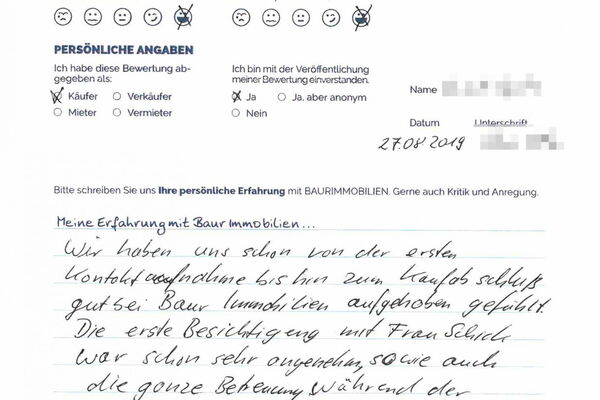 PERSÖNLICHE ANGABEN
Ich habe diese Bewertung ab-
gegeben als:
Käufer
Verkäufer
Mieter
Vermieter
Ich bin mit der Veröffentlichung
meiner Bewertung einverstanden.
Ja
Ja, aber anonym
Nein
Name
Datum
Unterschrift
27.08 2019
Bitte schreiben Sie uns Ihre persönliche Erfahrung mit BAURIMMOBILIEN. Gerne auch Kritik und Anregung.
Meine Erfahrung mit Baur Immobilien...
Wir haben uns schon von der ersten
Kontaktaufnahme bis hin zum Kaufabschluß
gut bei Baur Immobilien aufgehoben gefühlt.
Die erste Besichtigung mit Frau Schick
war schon sehr angenehm, sowie auch
die ganze Betreuung während der